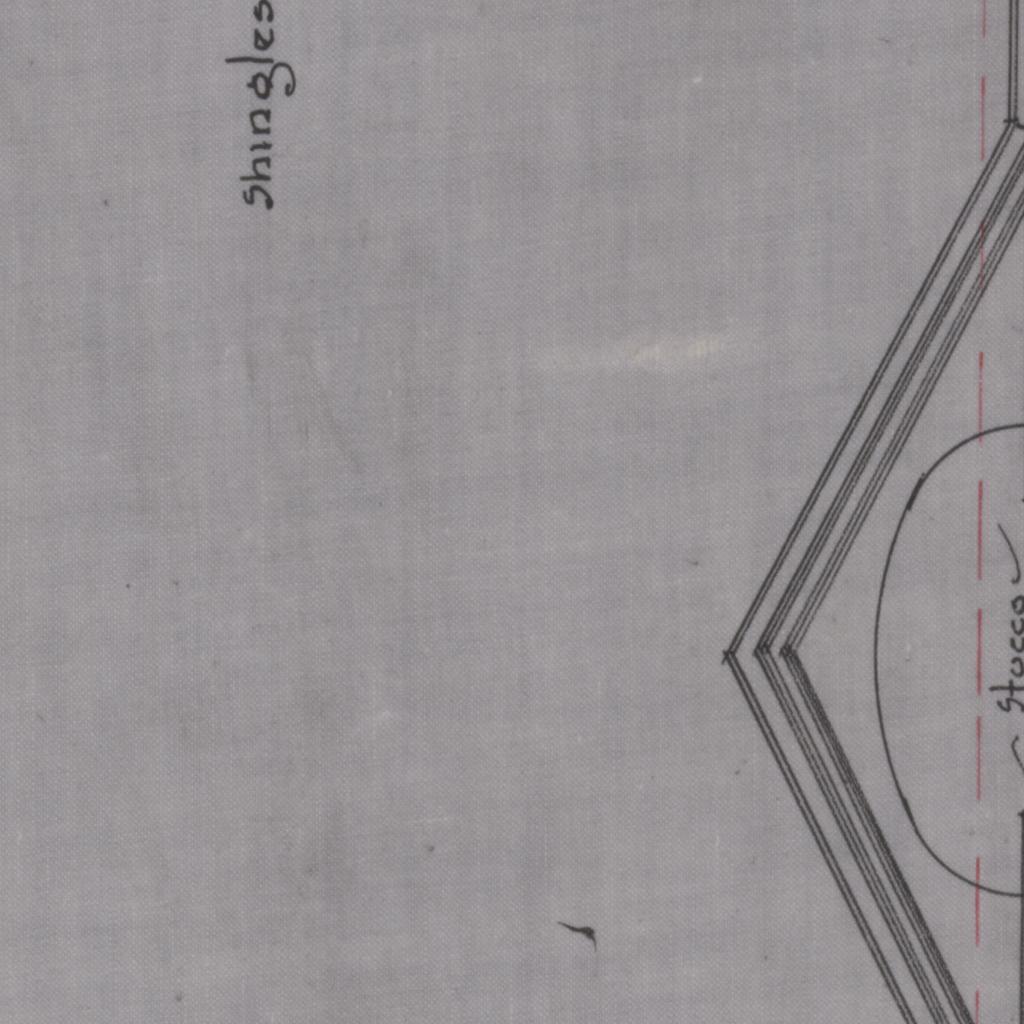 Shingles
Stucco